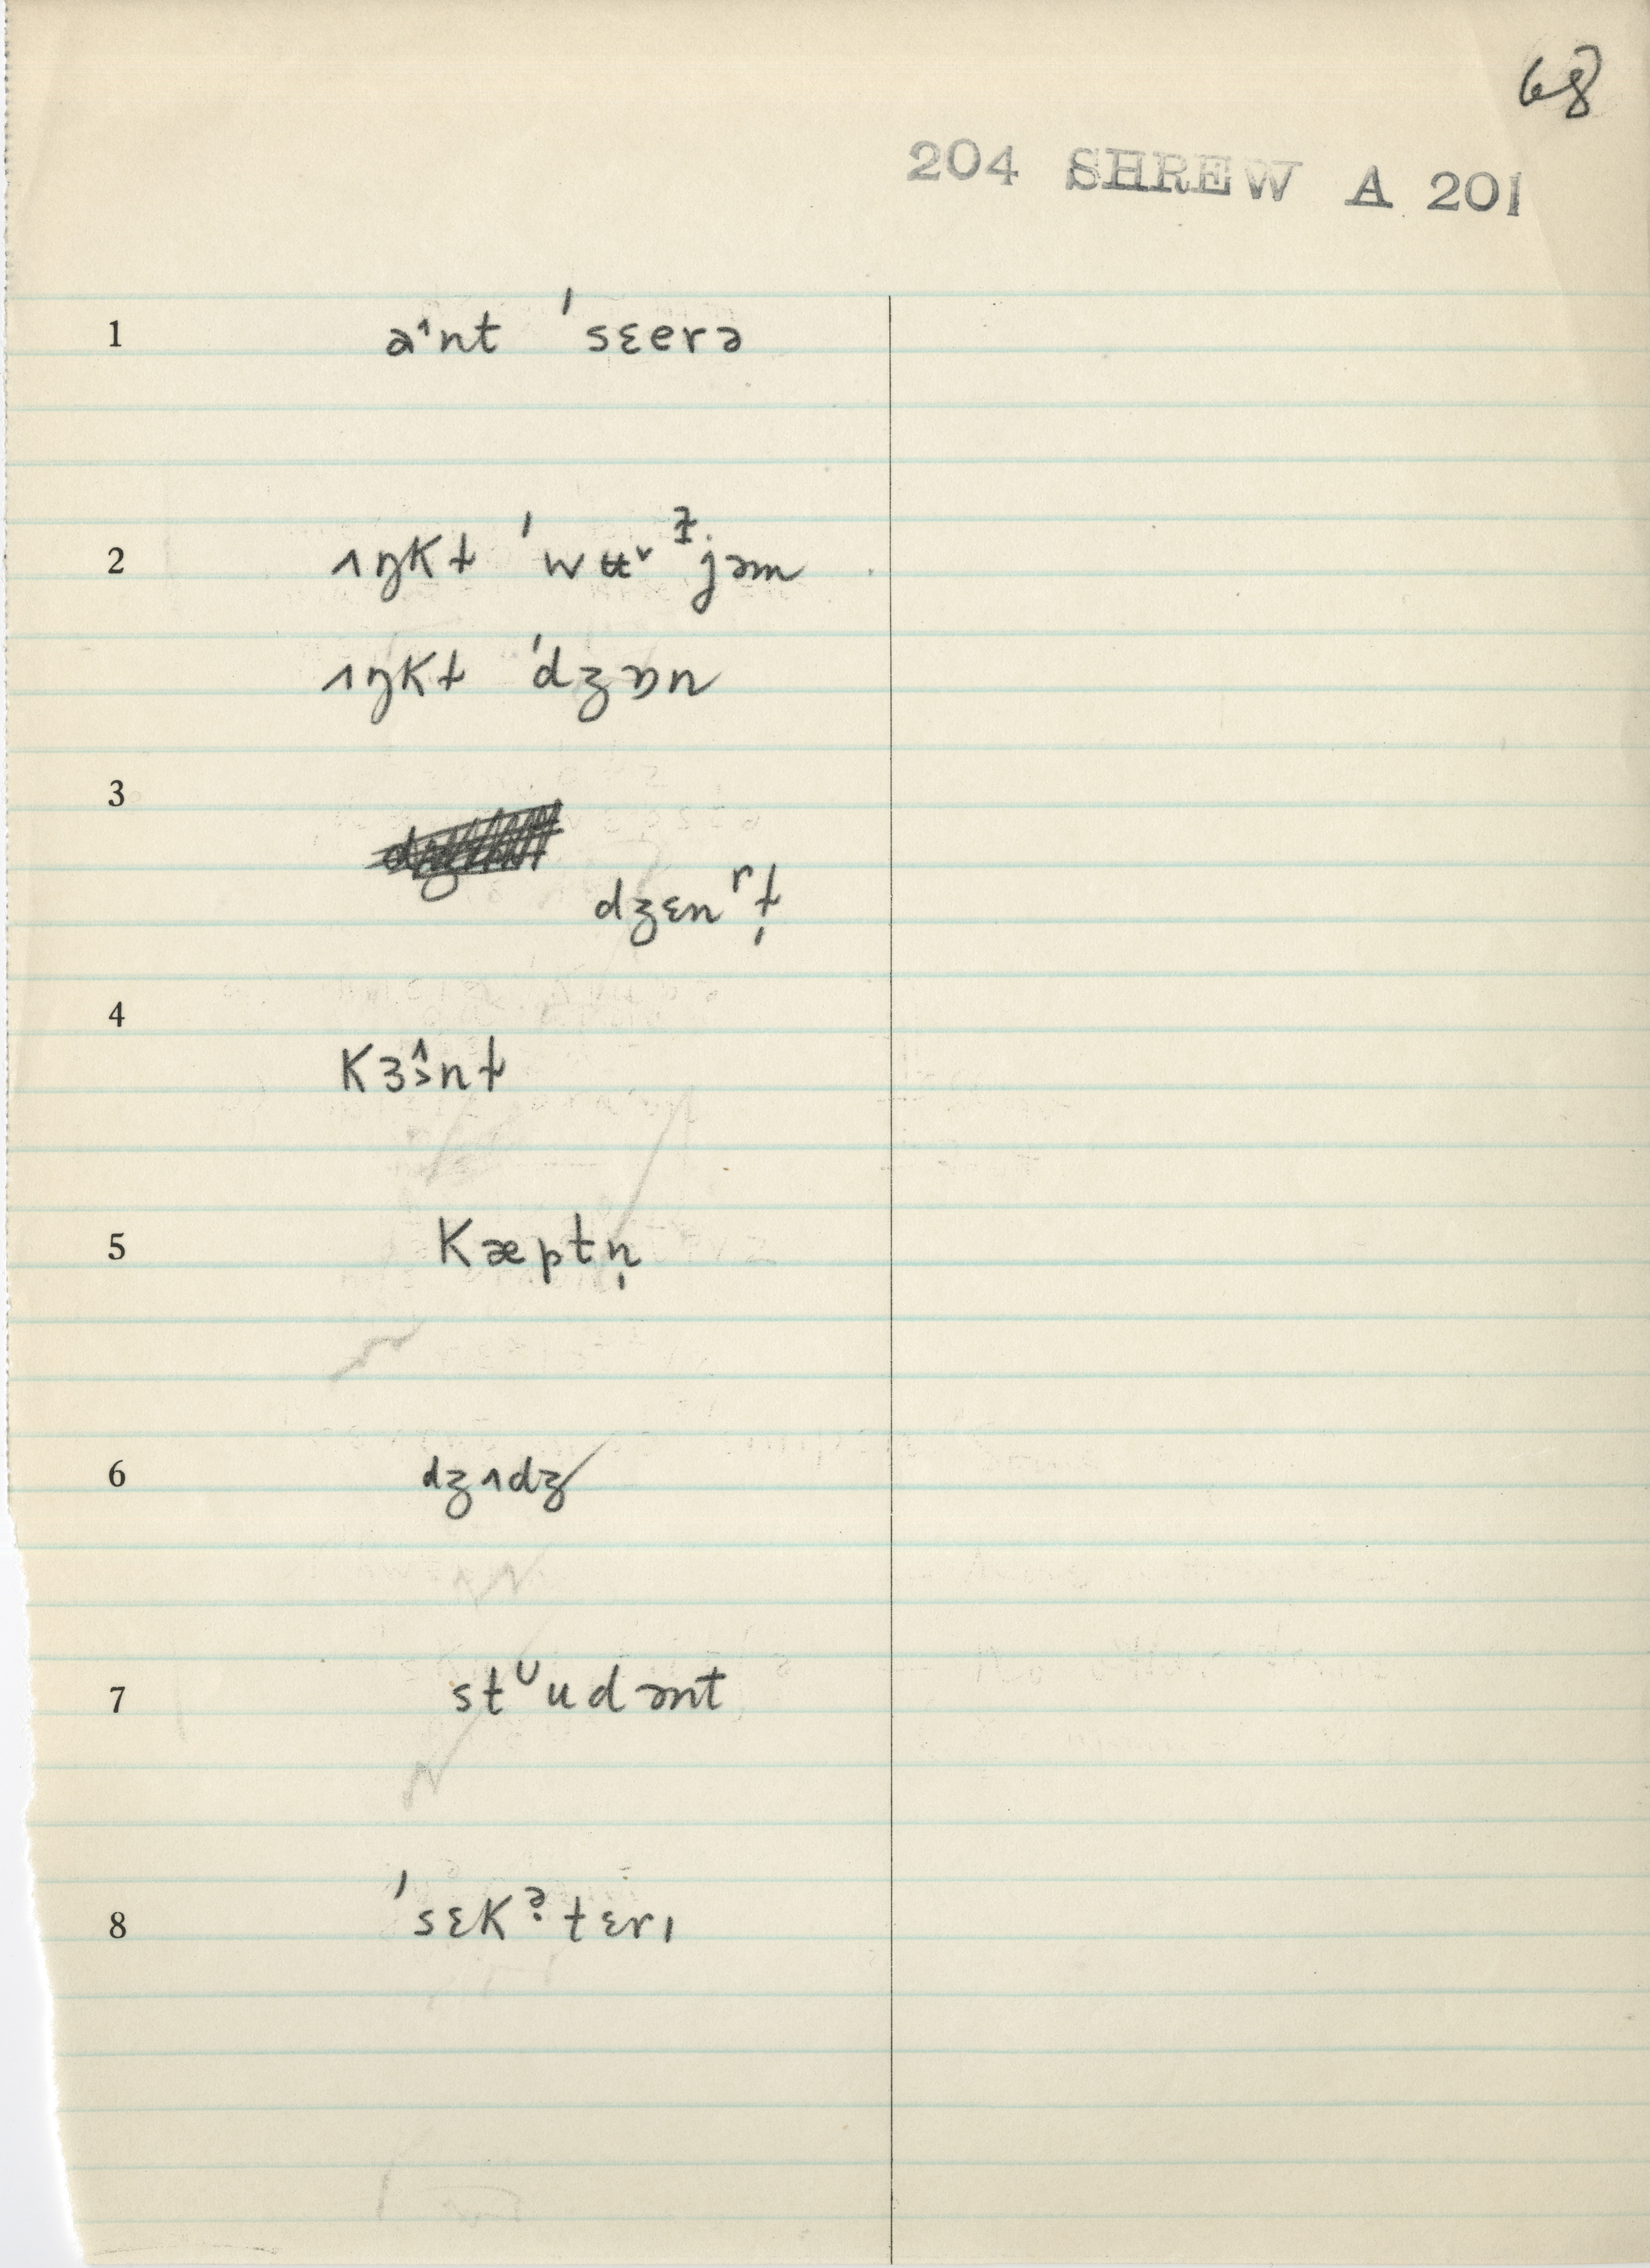 68
204 SHREW A 201
1 a˄nt ˈsɛerə
2 ʌŋkɫ ˈwʉ˅ɫ̣jəm
ʌŋkɫ ˈdʒɒn
3
dʒɛnʳɫ̩
4 kɜɔ̂nt
5 kæptn̩
6 dʒʌdʒ
7 stᶸudənt
8 ˈsɛkʔ̣tɛrɪ